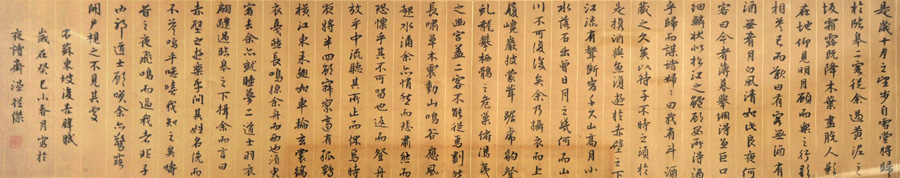 是歲十月之望步自雪堂將歸
於臨皋二客從余過黃泥之
坂霜露既降木葉盡脫人影
在地仰見明月顧而樂之行歌
相答已而歎曰有客無酒有
酒無肴月白風清如此良夜何
客曰今者薄暮舉網得魚巨口
細鱗狀似松江之鱸顧安所得酒
乎歸而謀諸婦婦曰我有斗酒
藏之久矣以待子不時之須於
是攜酒與魚復遊於赤壁之下
江流有聲斷岸千尺山高月小
水落石出曾日月之幾何而山
川不可復識矣余乃攝衣而上
履巉巖披蒙茸踞虎豹登
虬龍攀栖鶻之危巢俯馮夷
之幽宮蓋二客不能從焉劃然
長嘯草木震動山鳴谷應風
起水涌余亦悄然而悲肅然而
恐凜乎其不可留也返而登舟
放乎中流聽其所止而休焉時
夜將半四顧寂寥適有孤鶴
橫江東來翅如車輪玄裳縞
衣戛然長鳴掠余舟而西也須臾
客去余亦就睡夢一道士羽衣
翩躚過臨皋之下揖余而言曰
赤壁之遊樂乎問其姓名俛而
不答嗚呼噫嘻我知之矣疇
昔之夜飛鳴而過我者非子
也耶道士顧笑余亦驚寤
開戶視之不見其處
右蘇東坡後赤壁賦
歲在癸巳小春月寫於
夜齋傑